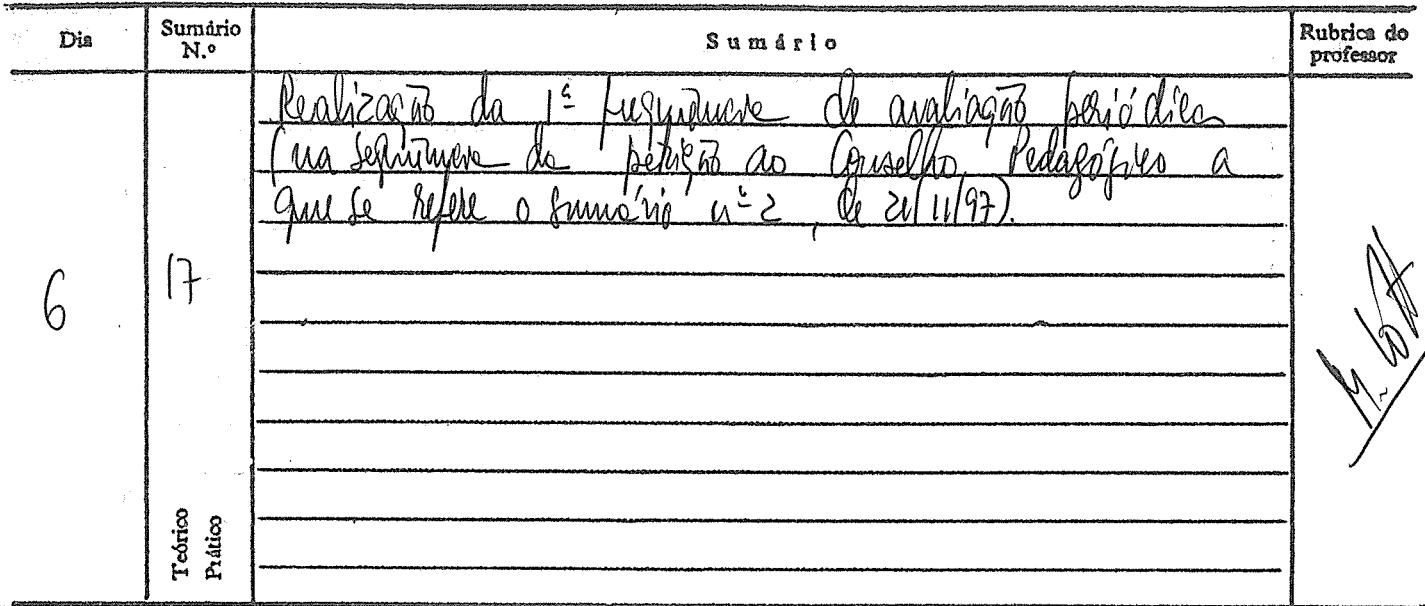 Dia
Sumário N.º
Sumário
Rubrica do professor
6
17
Realização da 1ª frequência de avaliação periódica
(na sequência da petição ao Conselho Pedagógico a
que se refere o sumário nº 2, de 21/11/97).
Teórico
Prático